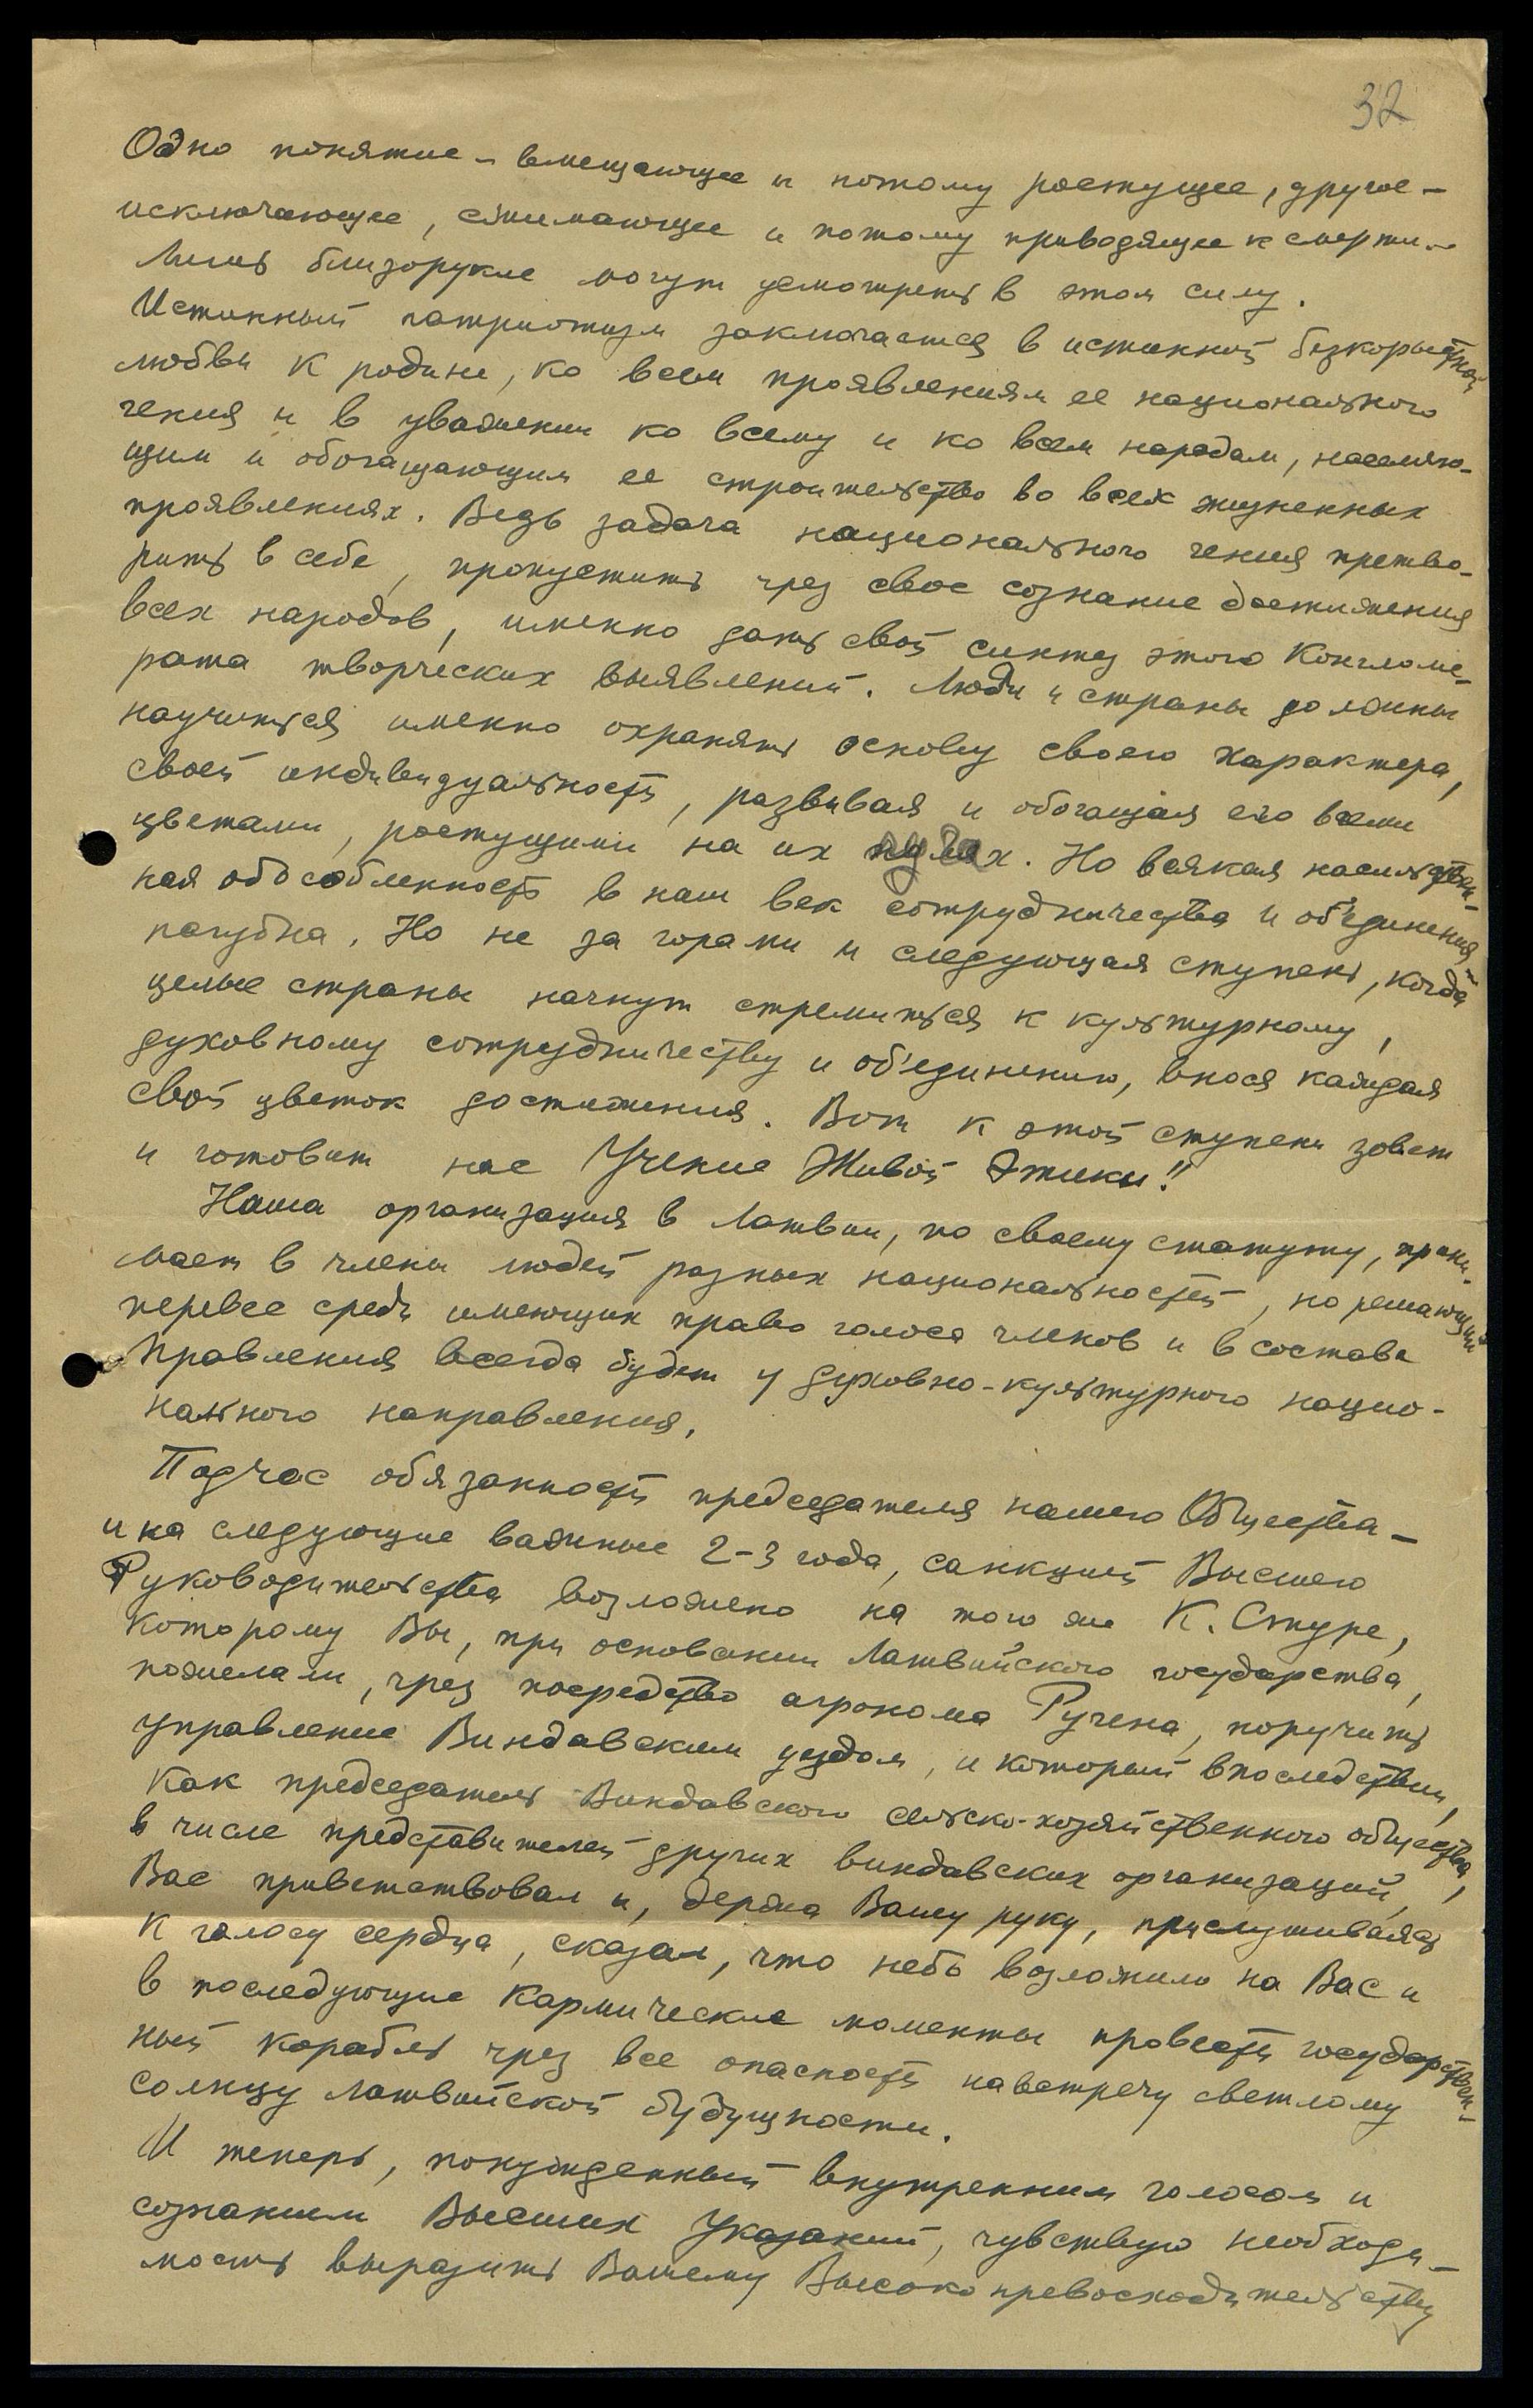 32
Одно понятие – вмещающее и потому ростущее, другое –
исключающее, сжимающее и потому приводящее к смерти. –
Лишь близорукие могут усмотреть в этом силу.
Истинный патриотизм заключается в истинной безкорыстной
любви к родине, ко всем проявлениям ее национального
гения и в уважении ко всему и ко всем народам, населяю-
щим и обогащающим ее строительство во всех жизненных
проявлениях. Ведь задача национального гения претво-
рить в себе, пропустить чрез свое сознание достижения
всех народов, именно дать свой синтез этого конгломе-
рата творческих выявлений. Люди и страны должны
научиться именно охранять основу своего характера,
своей индивидуальности, развивая и обогащая его всеми
цветами, ростущими на их лугах. Но всякая насильствен-
ная обособленность в наш век сотрудничества и об'единения
пагубна. Но не за горами и следующая ступень, когда
целые страны начнут стремиться к культурному,
духовному сотрудничеству и об'единению, внося каждая
свой цветок достижения. Вот к этой ступени зовет
и готовит нас Учение Живой Этики!"
Наша организация в Латвии, по своему статуту, прини-
мает в члены людей разных национальностей, но решающий
перевес среди имеющих право голоса членов и в составе
Правления всегда будет у духовно-культурного нацио-
нального направления.
Подчас обязанности председателя нашего Общества –
и на следующие важные 2-3 года, санкцией Высшего
Руководительства возложено на того же К. Стуре,
которому Вы, при основании Латвийского государства,
пожелали, чрез посредство агронома Ругена, поручить
управление Виндавским уездом, и который впоследствии,
как председатель Виндавского сельско-хозяйственного общества,
в числе представителей других виндавских организаций,
Вас приветствовал и, держа Вашу руку, прислушиваясь
к голосу сердца, сказал, что небо возложило на Вас и
в последующие кармические моменты провести государствен-
ный корабль чрез все опасности навстречу светлому
солнцу латвийской будущности.
И теперь, понужденный внутренним голосом и
сознанием Высших Указаний, чувствую необходи-
мость выразить Вашему Высокопревосходительству